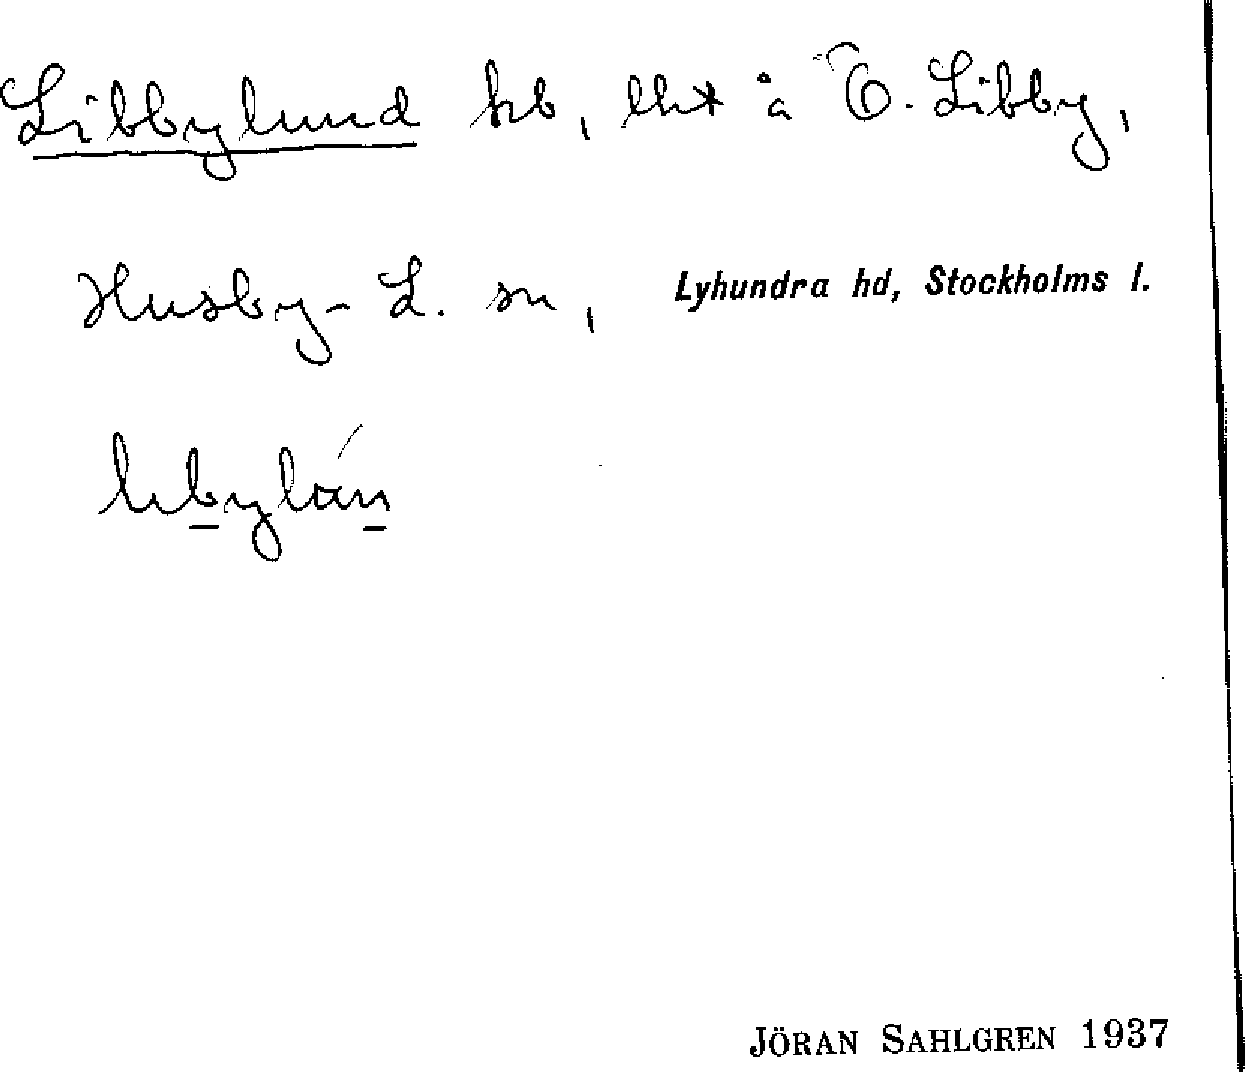 Libbylund hb, lht å Ö. Libby,
Husby-L. sn, Lyhundra hd, Stockholms l.
JÖRAN SAHLGREN 1937